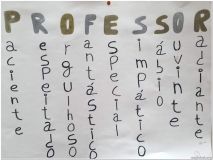 PROFESSOR
aciente
espeitado
rgulhoso
antástico
special
impático
ábio
uvinte
adiante